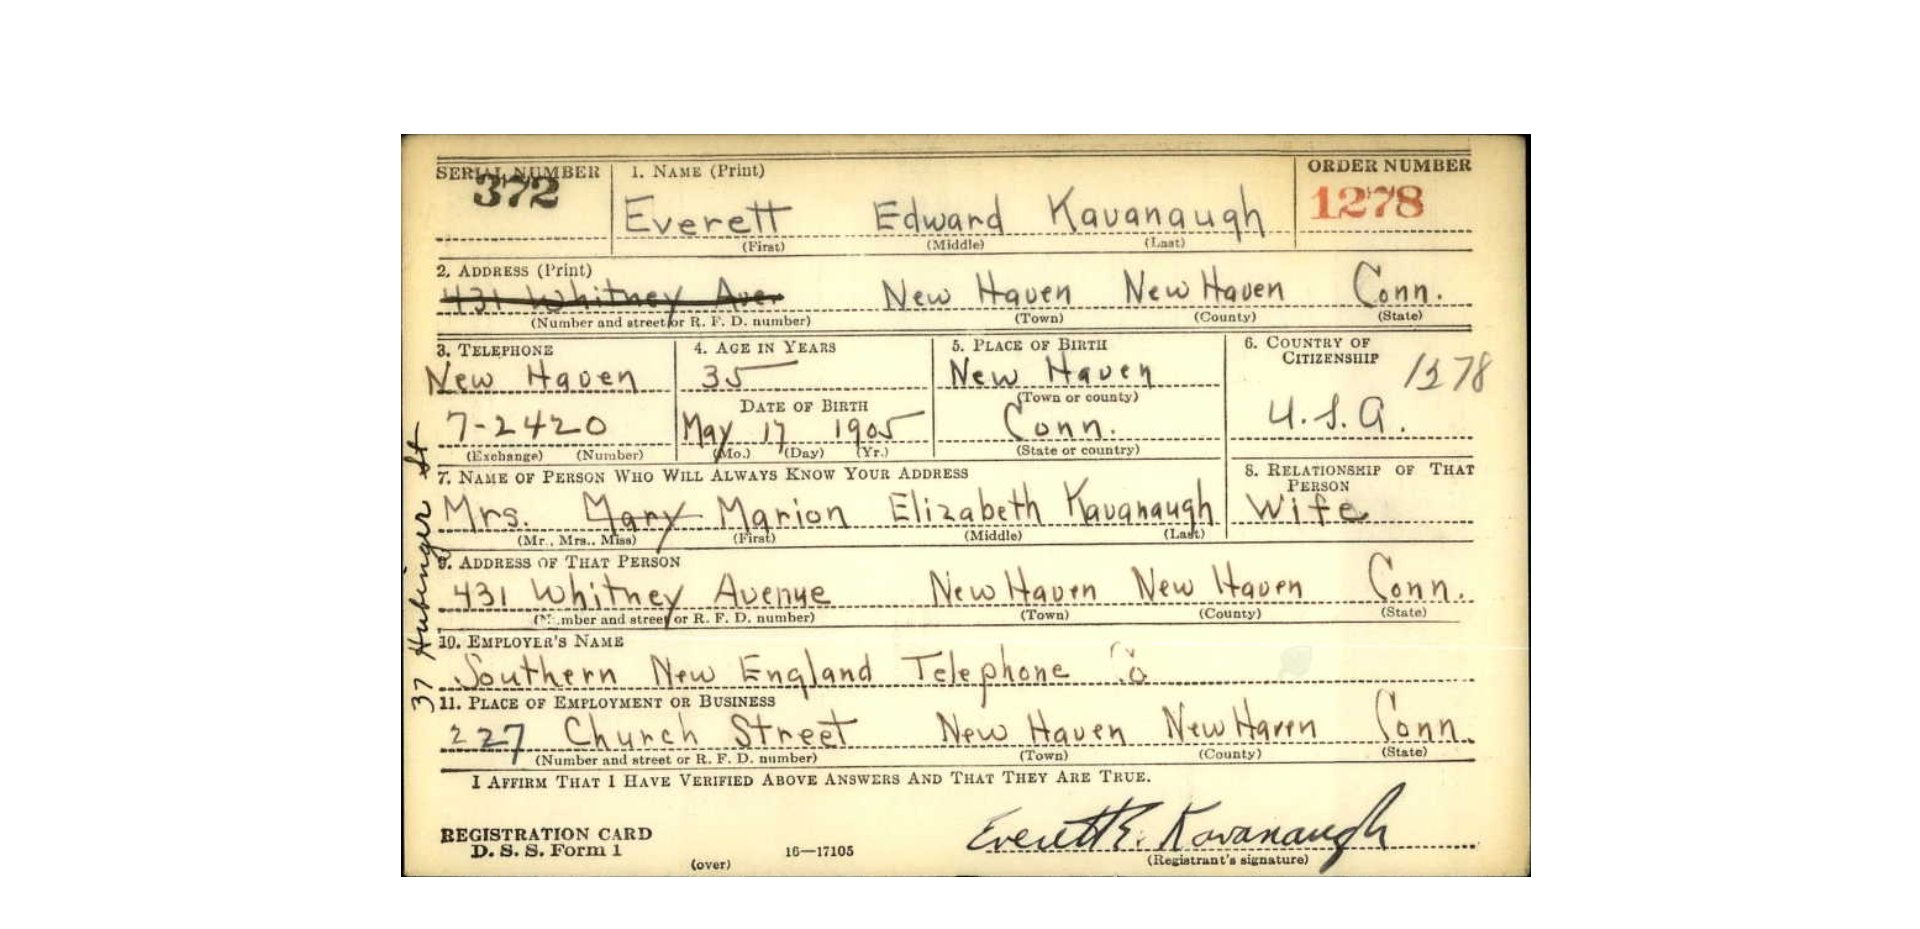 SERIAL NUMBER 1. NAME (Print) ORDER NUMBER
372 Everett Edward Kavanaugh 1278
(First) (Middle) (Last)
2. ADDRESS (Print)
431 Whitney Ave. New Haven New Haven Conn.
(Number and street or R. F. D. number) (Town) (County) (State)
3. TELEPHONE 4. AGE IN YEARS 5. PLACE OF BIRTH 6. COUNTRY OF
CITIZENSHIP
New Haven 35 New Haven 1278
DATE OF BIRTH (Town or county)
7-2420 May 17 1905 Conn. U.S.A.
(Exchange) (Number) (Mo.) (Day) (Yr.) (State or country)
7. NAME OF PERSON WHO WILL ALWAYS KNOW YOUR ADDRESS 8. RELATIONSHIP OF THAT
PERSON
Mrs. Mary Marion Elizabeth Kavanaugh Wife
(Mr., Mrs., Miss) (First) (Middle) (Last)
9. ADDRESS OF THAT PERSON
431 Whitney Avenue New Haven New Haven Conn.
(Number and street or R. F. D. number) (Town) (County) (State)
10. EMPLOYER'S NAME
Southern New England Telephone Co
11. PLACE OF EMPLOYMENT OR BUSINESS
227 Church Street New Haven New Haven Conn.
(Number and street or R. F. D. number) (Town) (County) (State)
I AFFIRM THAT I HAVE VERIFIED ABOVE ANSWERS AND THAT THEY ARE TRUE.
Everett E. Kavanaugh
REGISTRATION CARD
D. S. S. Form 1 16—17105 (Registrant's signature)
(over)
37 Hubinger St